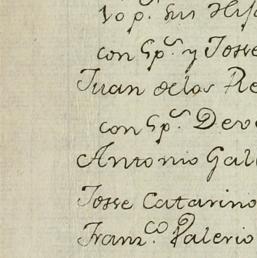 Vo p. sus Hij
con Sp.s y Josse
Juan de los Re
con Sp.s Devo
Antonio Gal
Josse Catarino
Fran.co Valerio